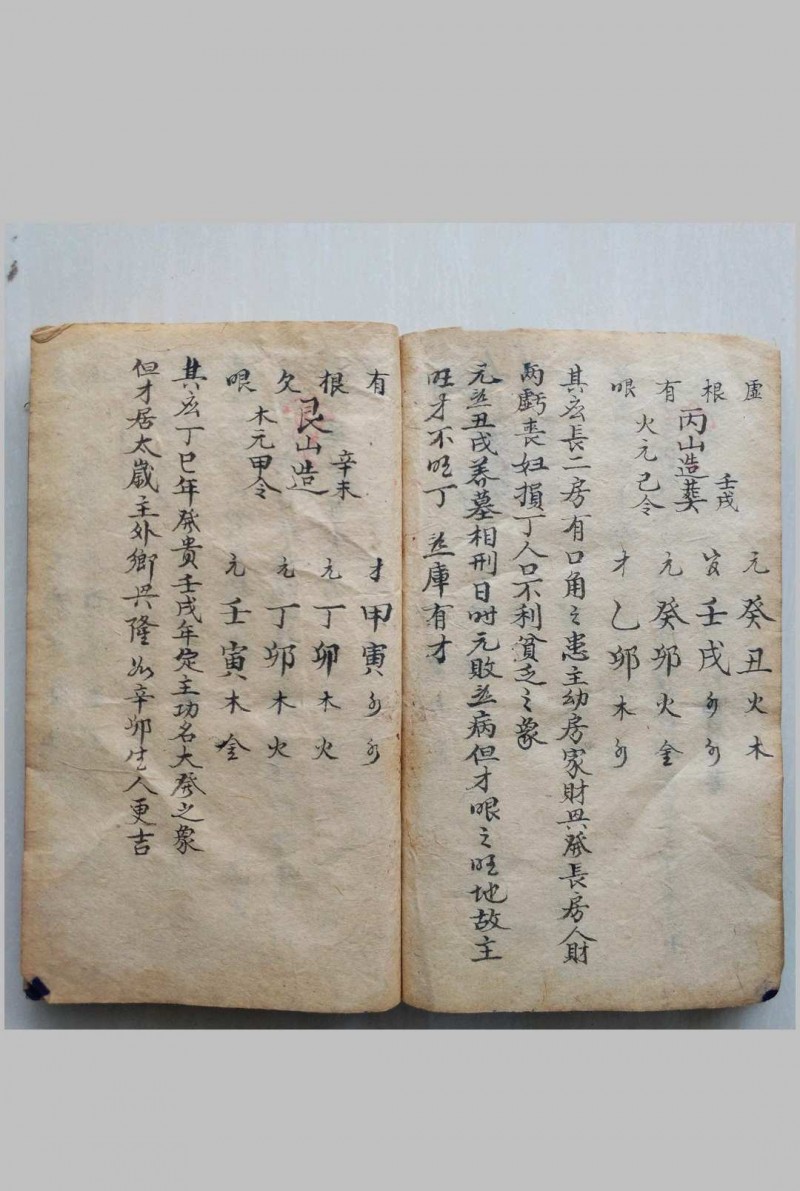 虛根有眼
丙山造葬
壬戌
火元己令
元癸丑火木
壬戌
元癸卯火金
才乙卯木
其宏長二房有口角之患主幼房家財興發長房人財
兩虧喪妇損丁人口不利貧乏之象
元並丑戌养墓相刑日时元敗並病但才眼之旺地故主
旺才不旺丁 並庫有才
有根欠眼
艮山造
辛未
木元甲令
才甲寅
元丁卯木火
元丁卯木火
元壬寅木金
其宏丁巳年發貴壬戌年定主功名大發之象
但才居太歲主外鄉興隆 辛卯生人更吉